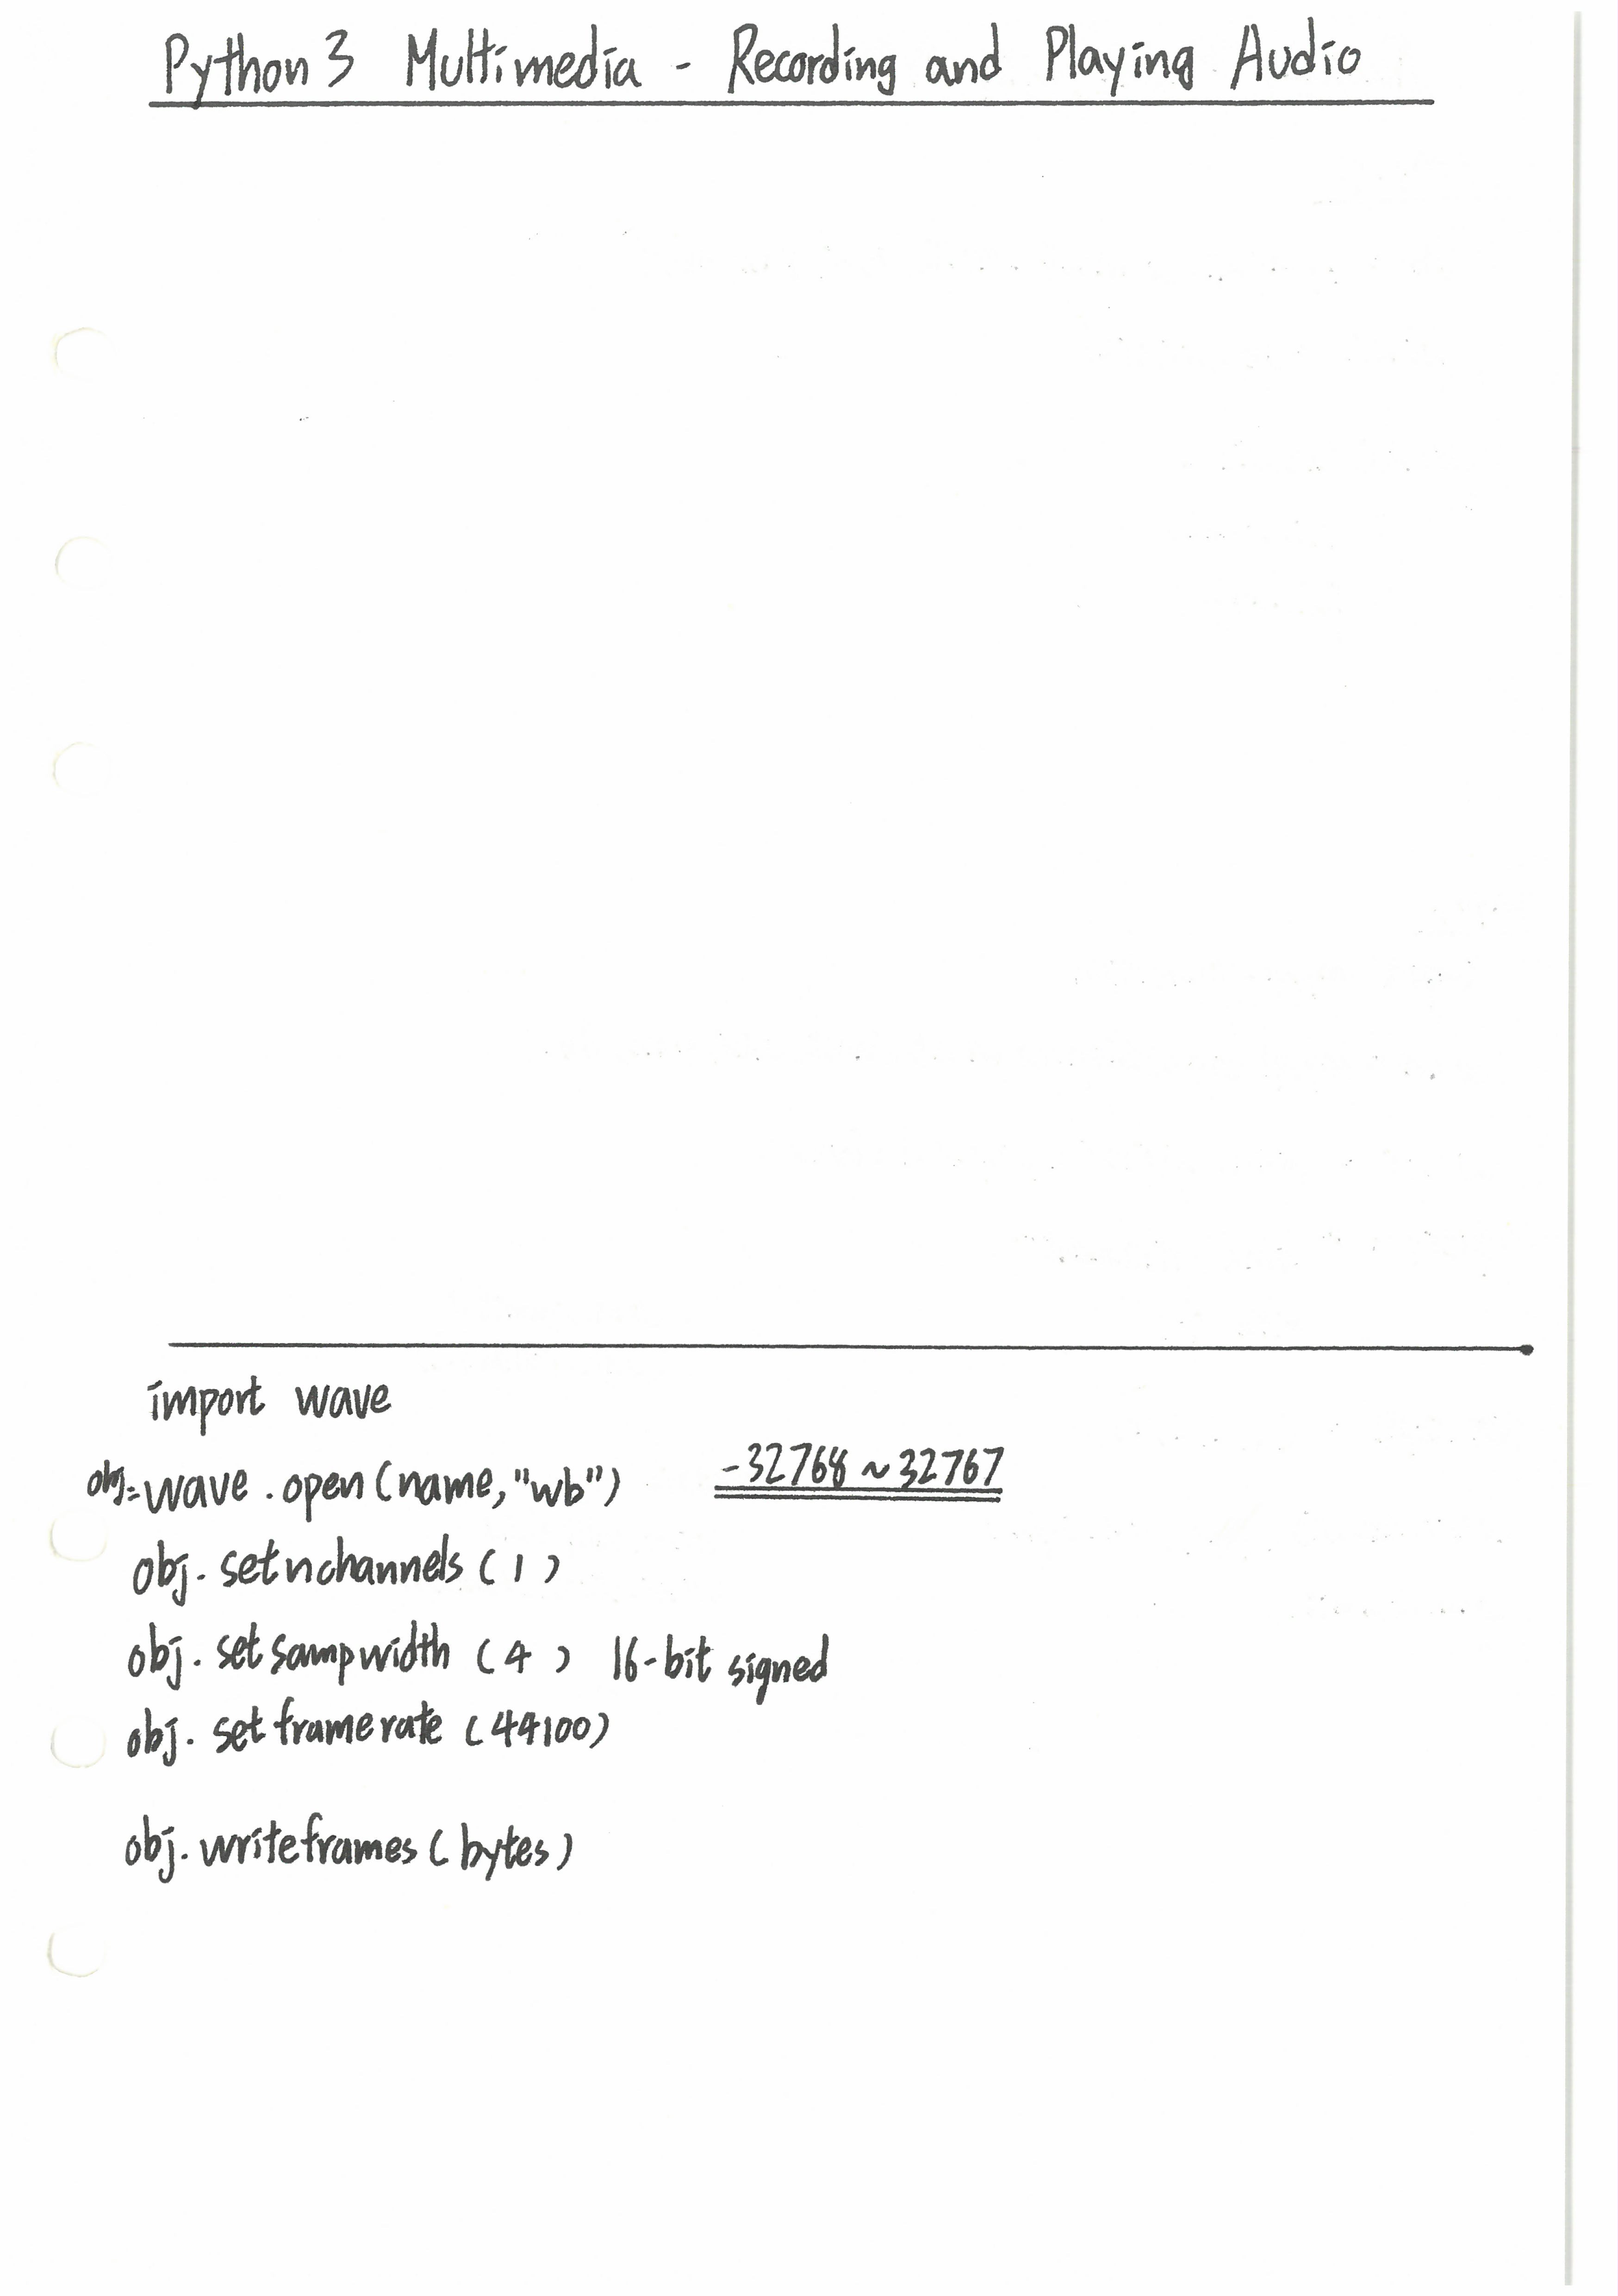 Python 3 Multimedia - Recording and Playing Audio
import wave
obj=wave.open(name,"wb") -32768~32767
obj.setnchannels(1)
obj.setsampwidth(4) 16-bit signed
obj.setframerate(44100)
obj.writeframes(bytes)